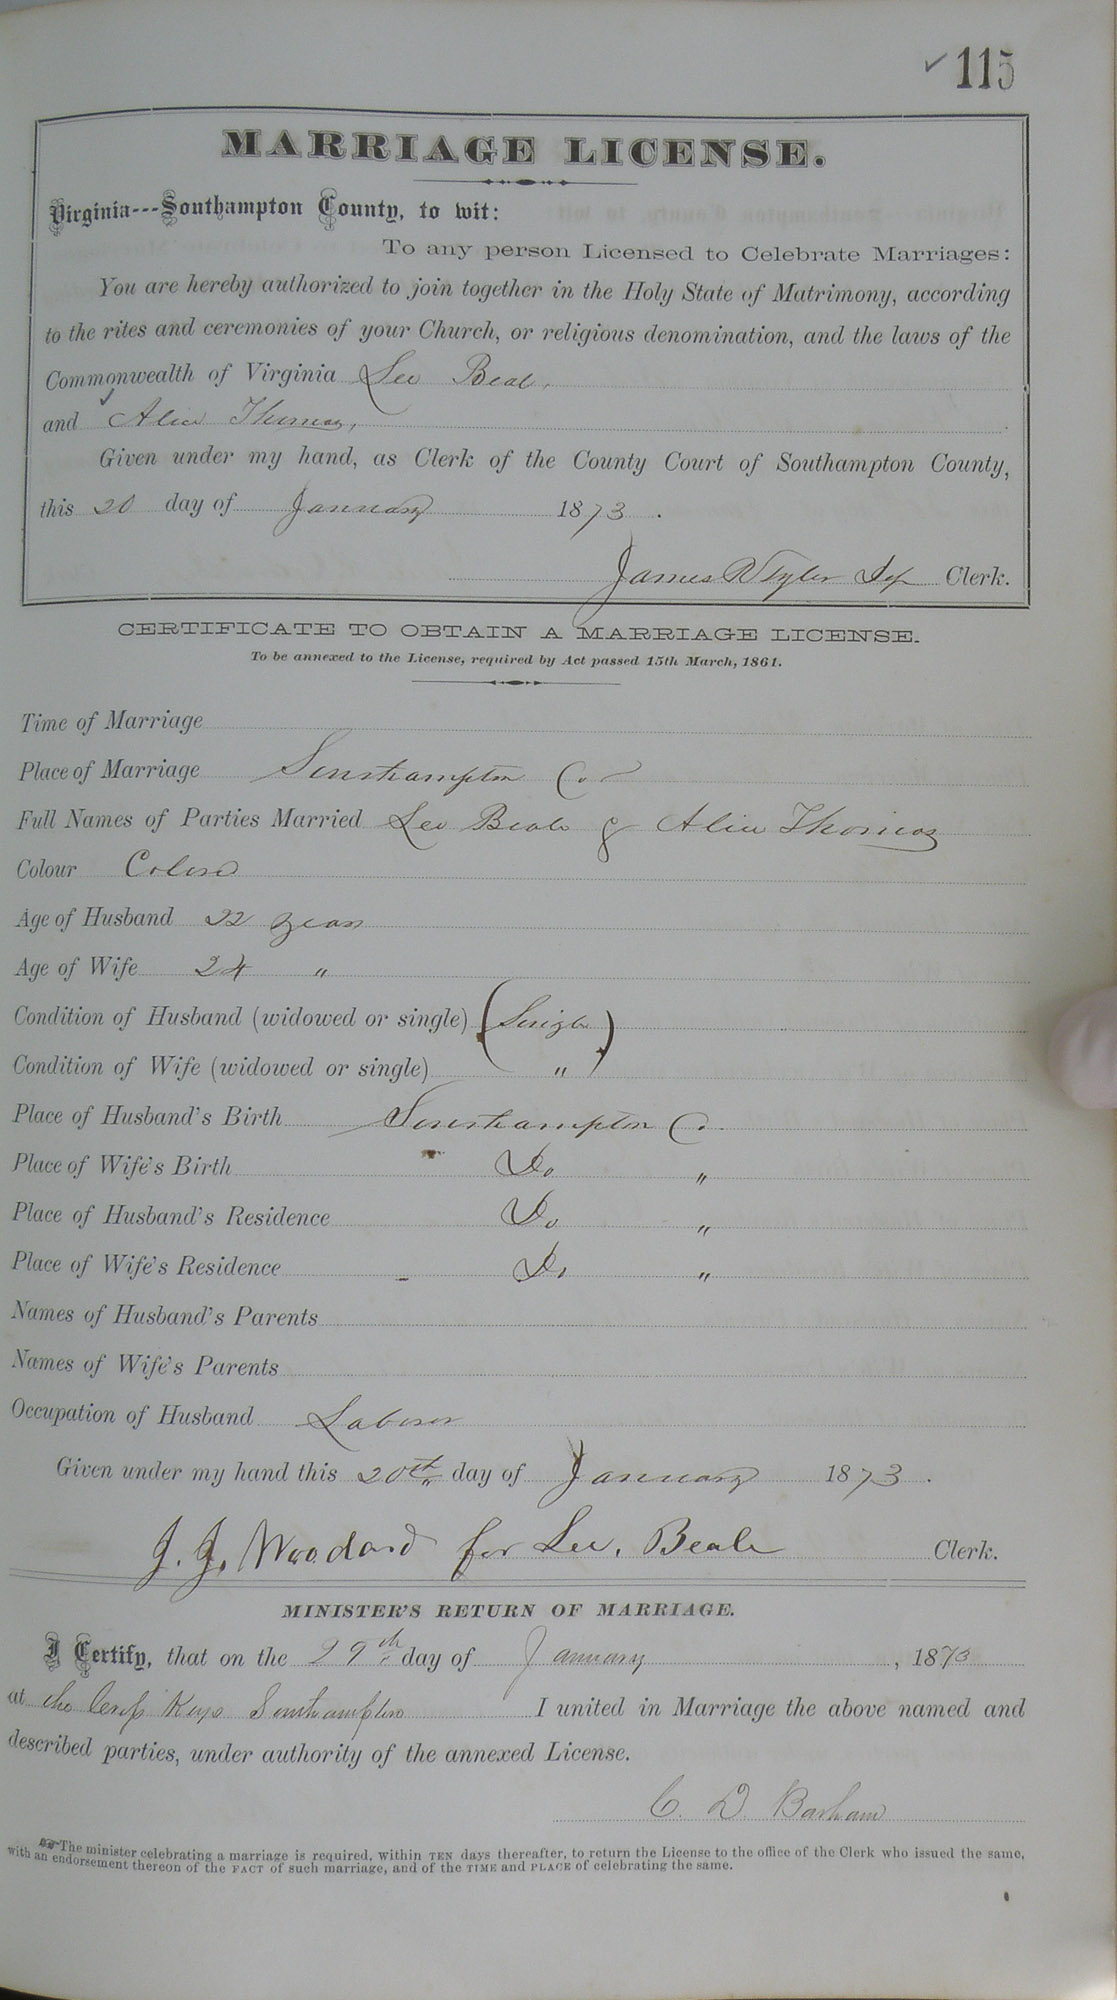 ✓ 115
MARRIAGE LICENSE.
Virginia---Southampton County, to wit:
To any person Licensed to Celebrate Marriages:
You are hereby authorized to join together in the Holy State of Matrimony, according
to the rites and ceremonies of your Church, or religious denomination, and the laws of the
Commonwealth of Virginia Lee Beal,
and Alice Thomas,
Given under my hand, as Clerk of the County Court of Southampton County,
this 20 day of January 1873.
James R Tyler Dep Clerk.
CERTIFICATE TO OBTAIN A MARRIAGE LICENSE.
To be annexed to the License, required by Act passed 15th March, 1861.
Time of Marriage
Place of Marriage Southampton Co
Full Names of Parties Married Lee Beale & Alice Thomas
Colour Colord
Age of Husband 22 years
Age of Wife 24 "
Condition of Husband (widowed or single) (Single)
Condition of Wife (widowed or single) "
Place of Husband's Birth Southampton C.
Place of Wife's Birth Do "
Place of Husband's Residence Do "
Place of Wife's Residence Do "
Names of Husband's Parents
Names of Wife's Parents
Occupation of Husband Laborer
Given under my hand this 20th day of January 1873.
J. J. Woodard for Lee. Beale Clerk.
MINISTER'S RETURN OF MARRIAGE.
I Certify, that on the 29th day of January, 1873
at Southampton I united in Marriage the above named and
described parties, under authority of the annexed License.
C. D. Barham
The minister celebrating a marriage is required, within TEN days thereafter, to return the License to the office of the Clerk who issued the same,
with an endorsement thereon of the FACT of such marriage, and of the TIME and PLACE of celebrating the same.